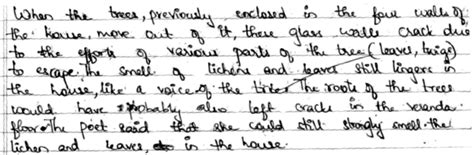 When the trees, previously enclosed in the four walls of
the house, move out of it, these glass walls crack due
to the efforts of various parts of the tree (leaves, twigs)
to escape. The smell of lichens and leaves still lingers in
the house, like a voice of the trees. The roots of the trees
would have probably also left cracks in the veranda
floor. The poet said that she could still strongly smell the
lichen and leaves in the house.